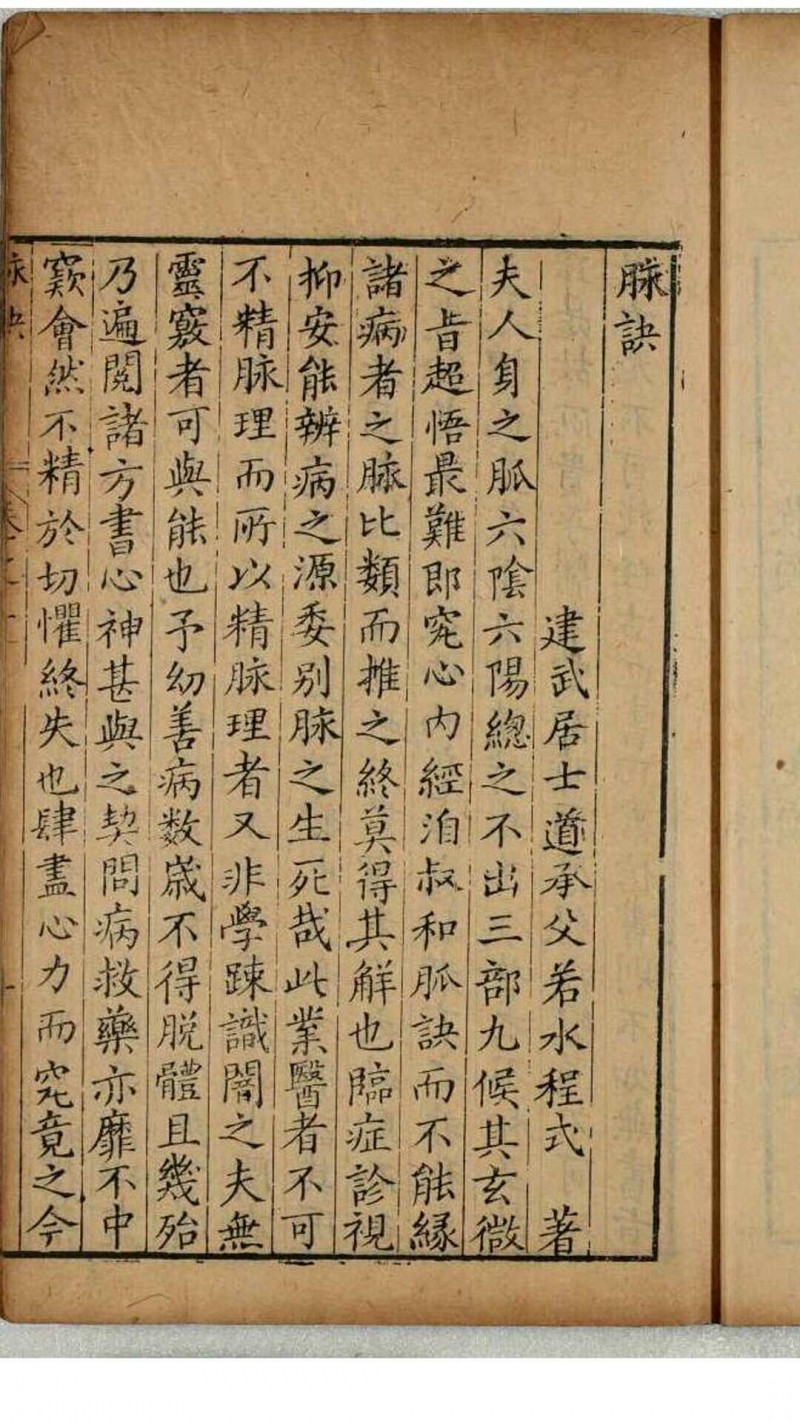 脉訣
建武居士道承父若水程式　著
夫人身之脈六陰六陽總之不出三部九候其玄微
之旨超悟最難即究心内經洎叔和脈訣而不能緣
諸病者之脉比類而推之終莫得其解也臨症診視
抑安能辨病之源委别脉之生死哉此業醫者不可
不精脉理而所以精脉理者又非學踈識闇之夫無
靈竅者可與能也予幼善病数嵗不得脱體且幾殆
乃遍閲諸方書心神甚與之契問病救藥亦靡不中
窾會然不精於切懼終失也肆盡心力而究竟之今